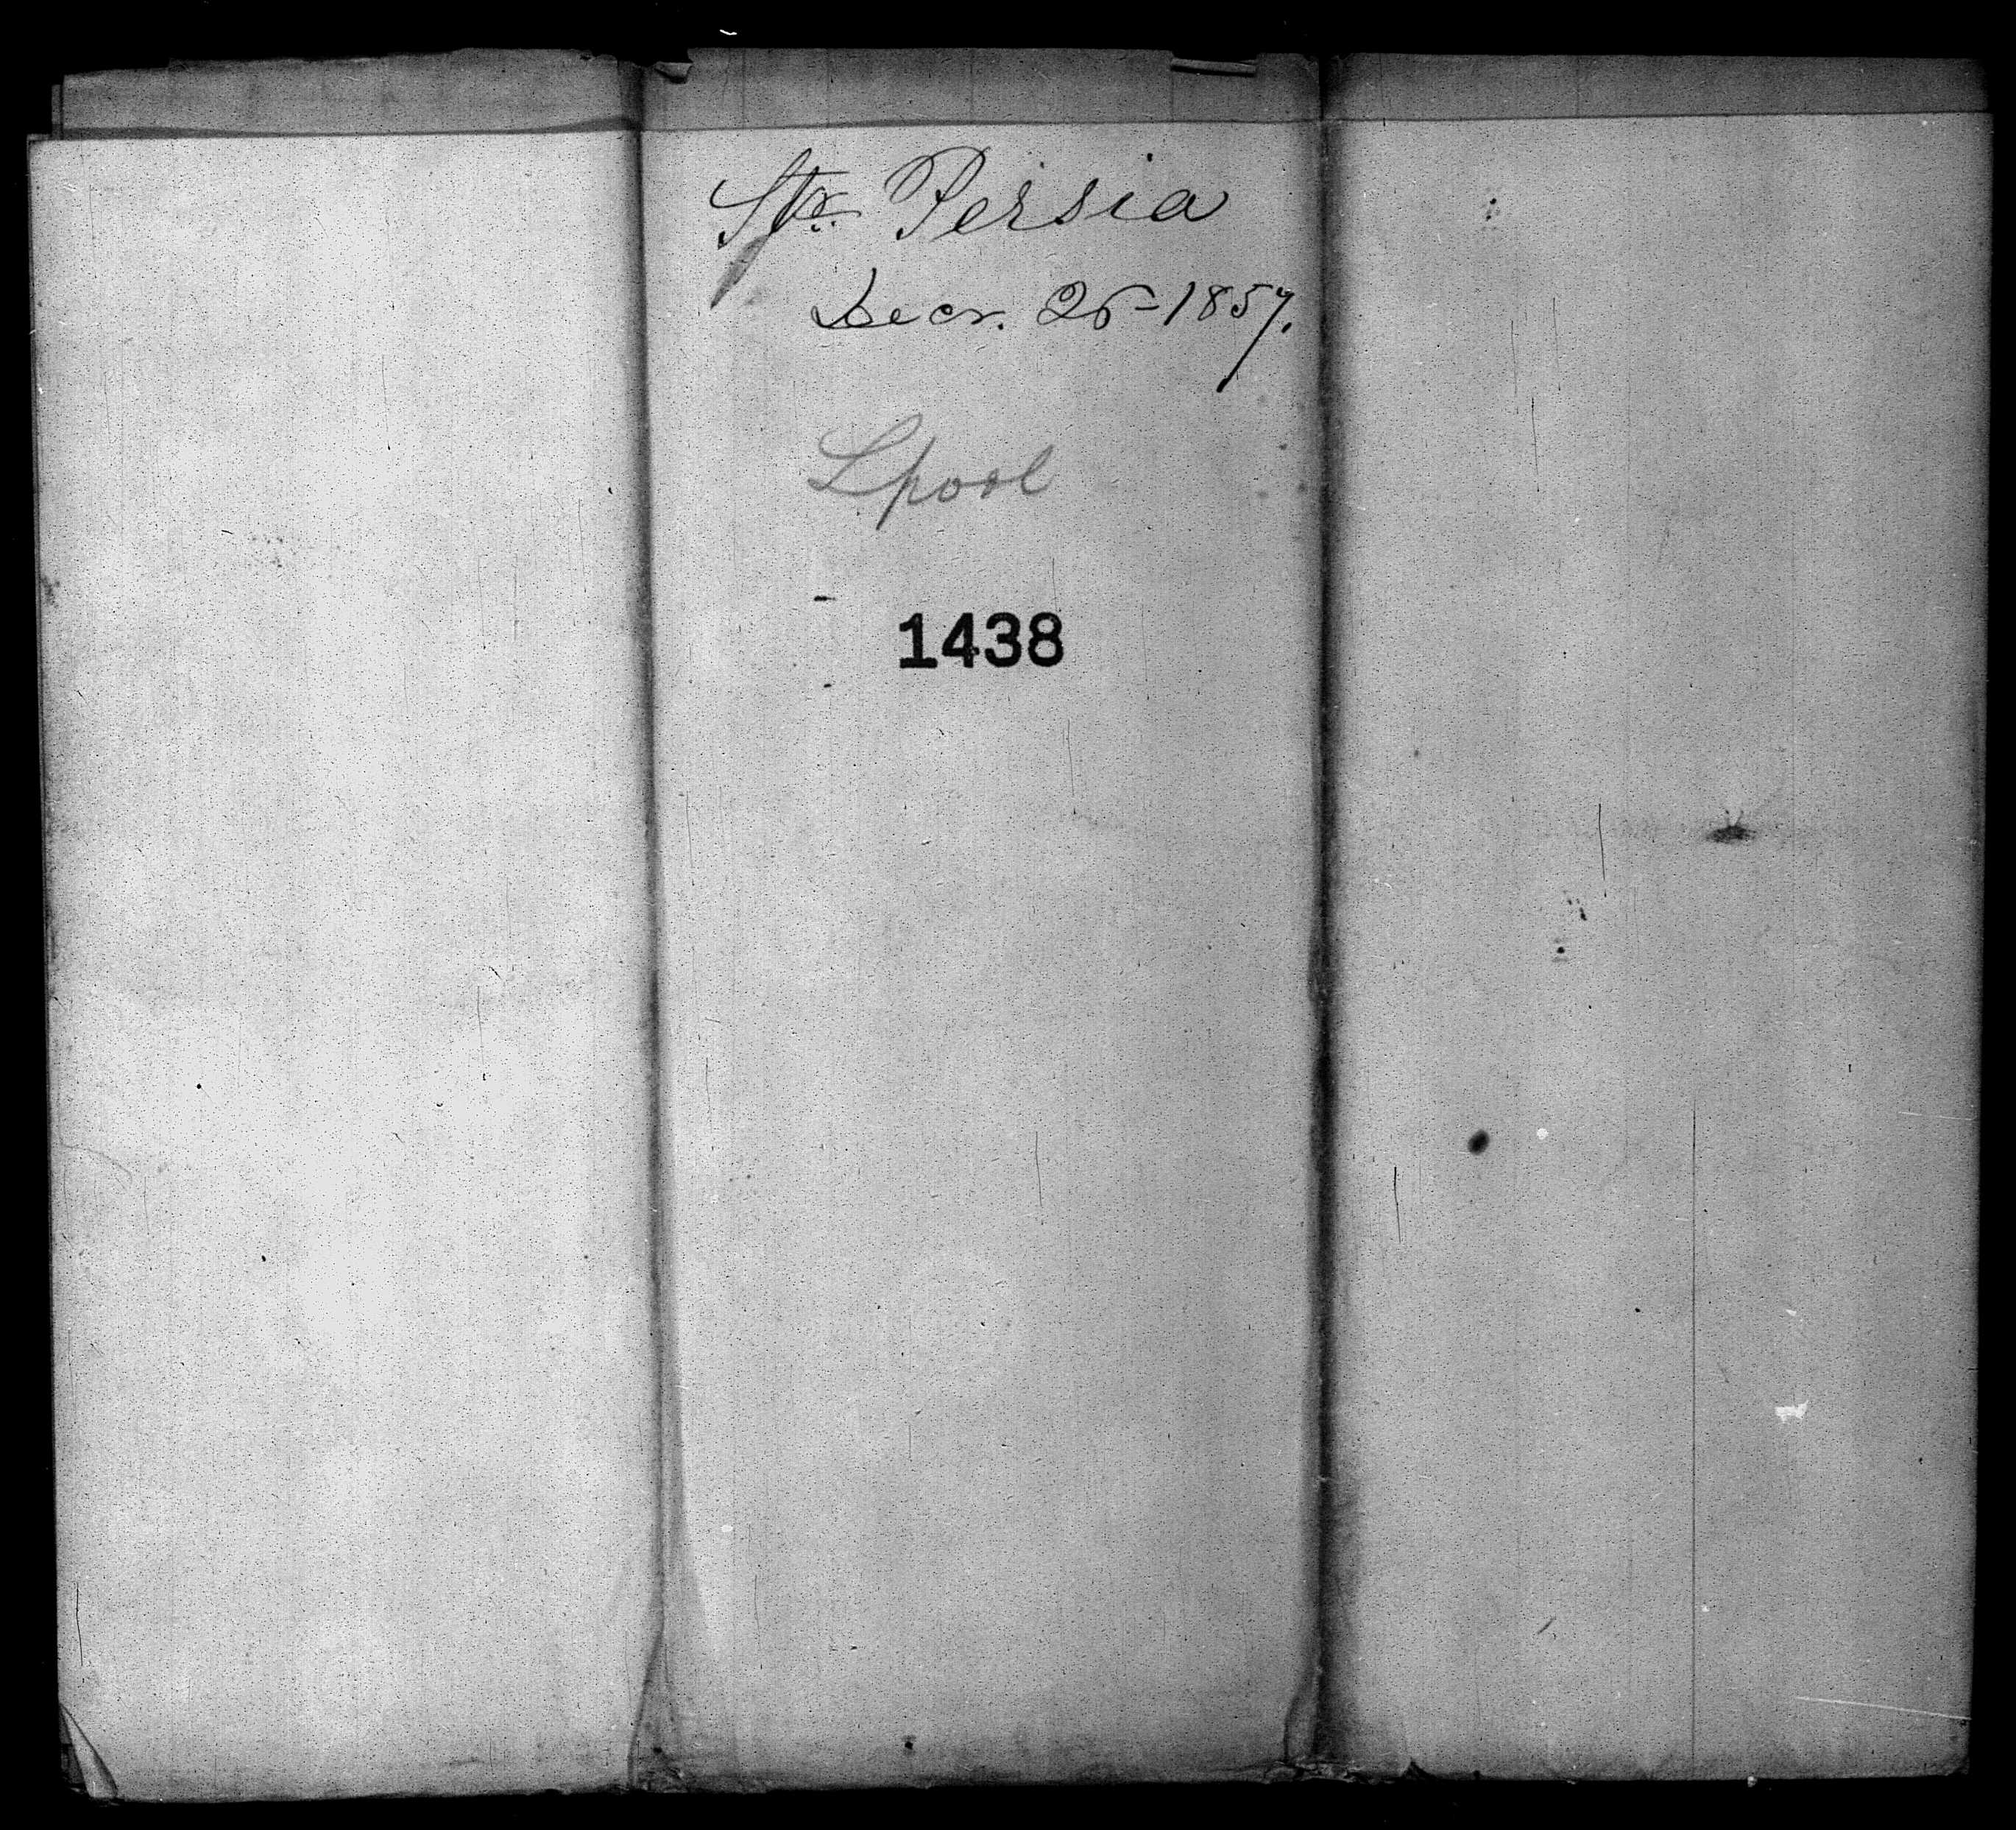 Str. Persia
Decr. 26-1857.
Lpool
1438